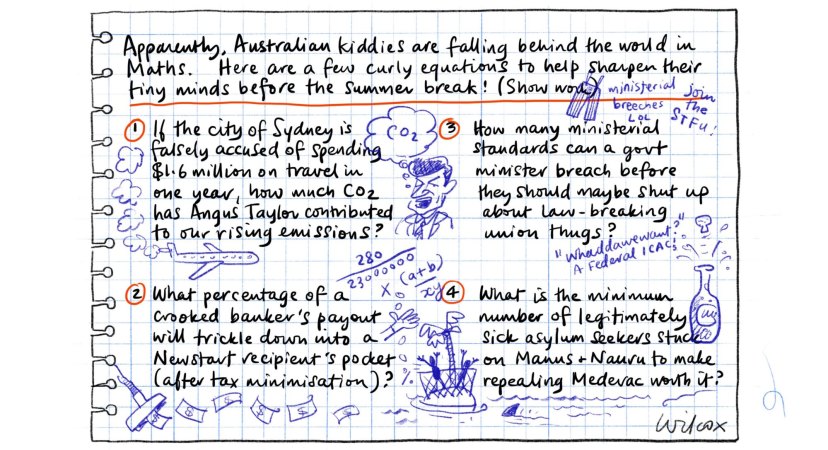 Apparently, Australian kiddies are falling behind the world in
Maths. Here are a few curly equations to help sharpen their
tiny minds before the Summer break! (Show work)
ministerial
breeches
LOL
join
the
STFU!
1 If the city of Sydney is
falsely accused of spending
$1.6 million on travel in
one year, how much CO2
has Angus Taylor contributed
to our rising emissions?
CO2
280
23000000
x (a+b)
xy
2 What percentage of a
crooked banker's payout
will trickle down into a
Newstart recipient's pocket
(after tax minimisation)?
%
3 How many ministerial
standards can a govt
minister breach before
they should maybe shut up
about law-breaking
union thugs?
"Whaddawewant?"
A Federal ICAC!
4 What is the minimum
number of legitimately
sick asylum seekers stuck
on Manus + Nauru to make
repealing Medevac worth it?
$ $ $ $
Wilcox